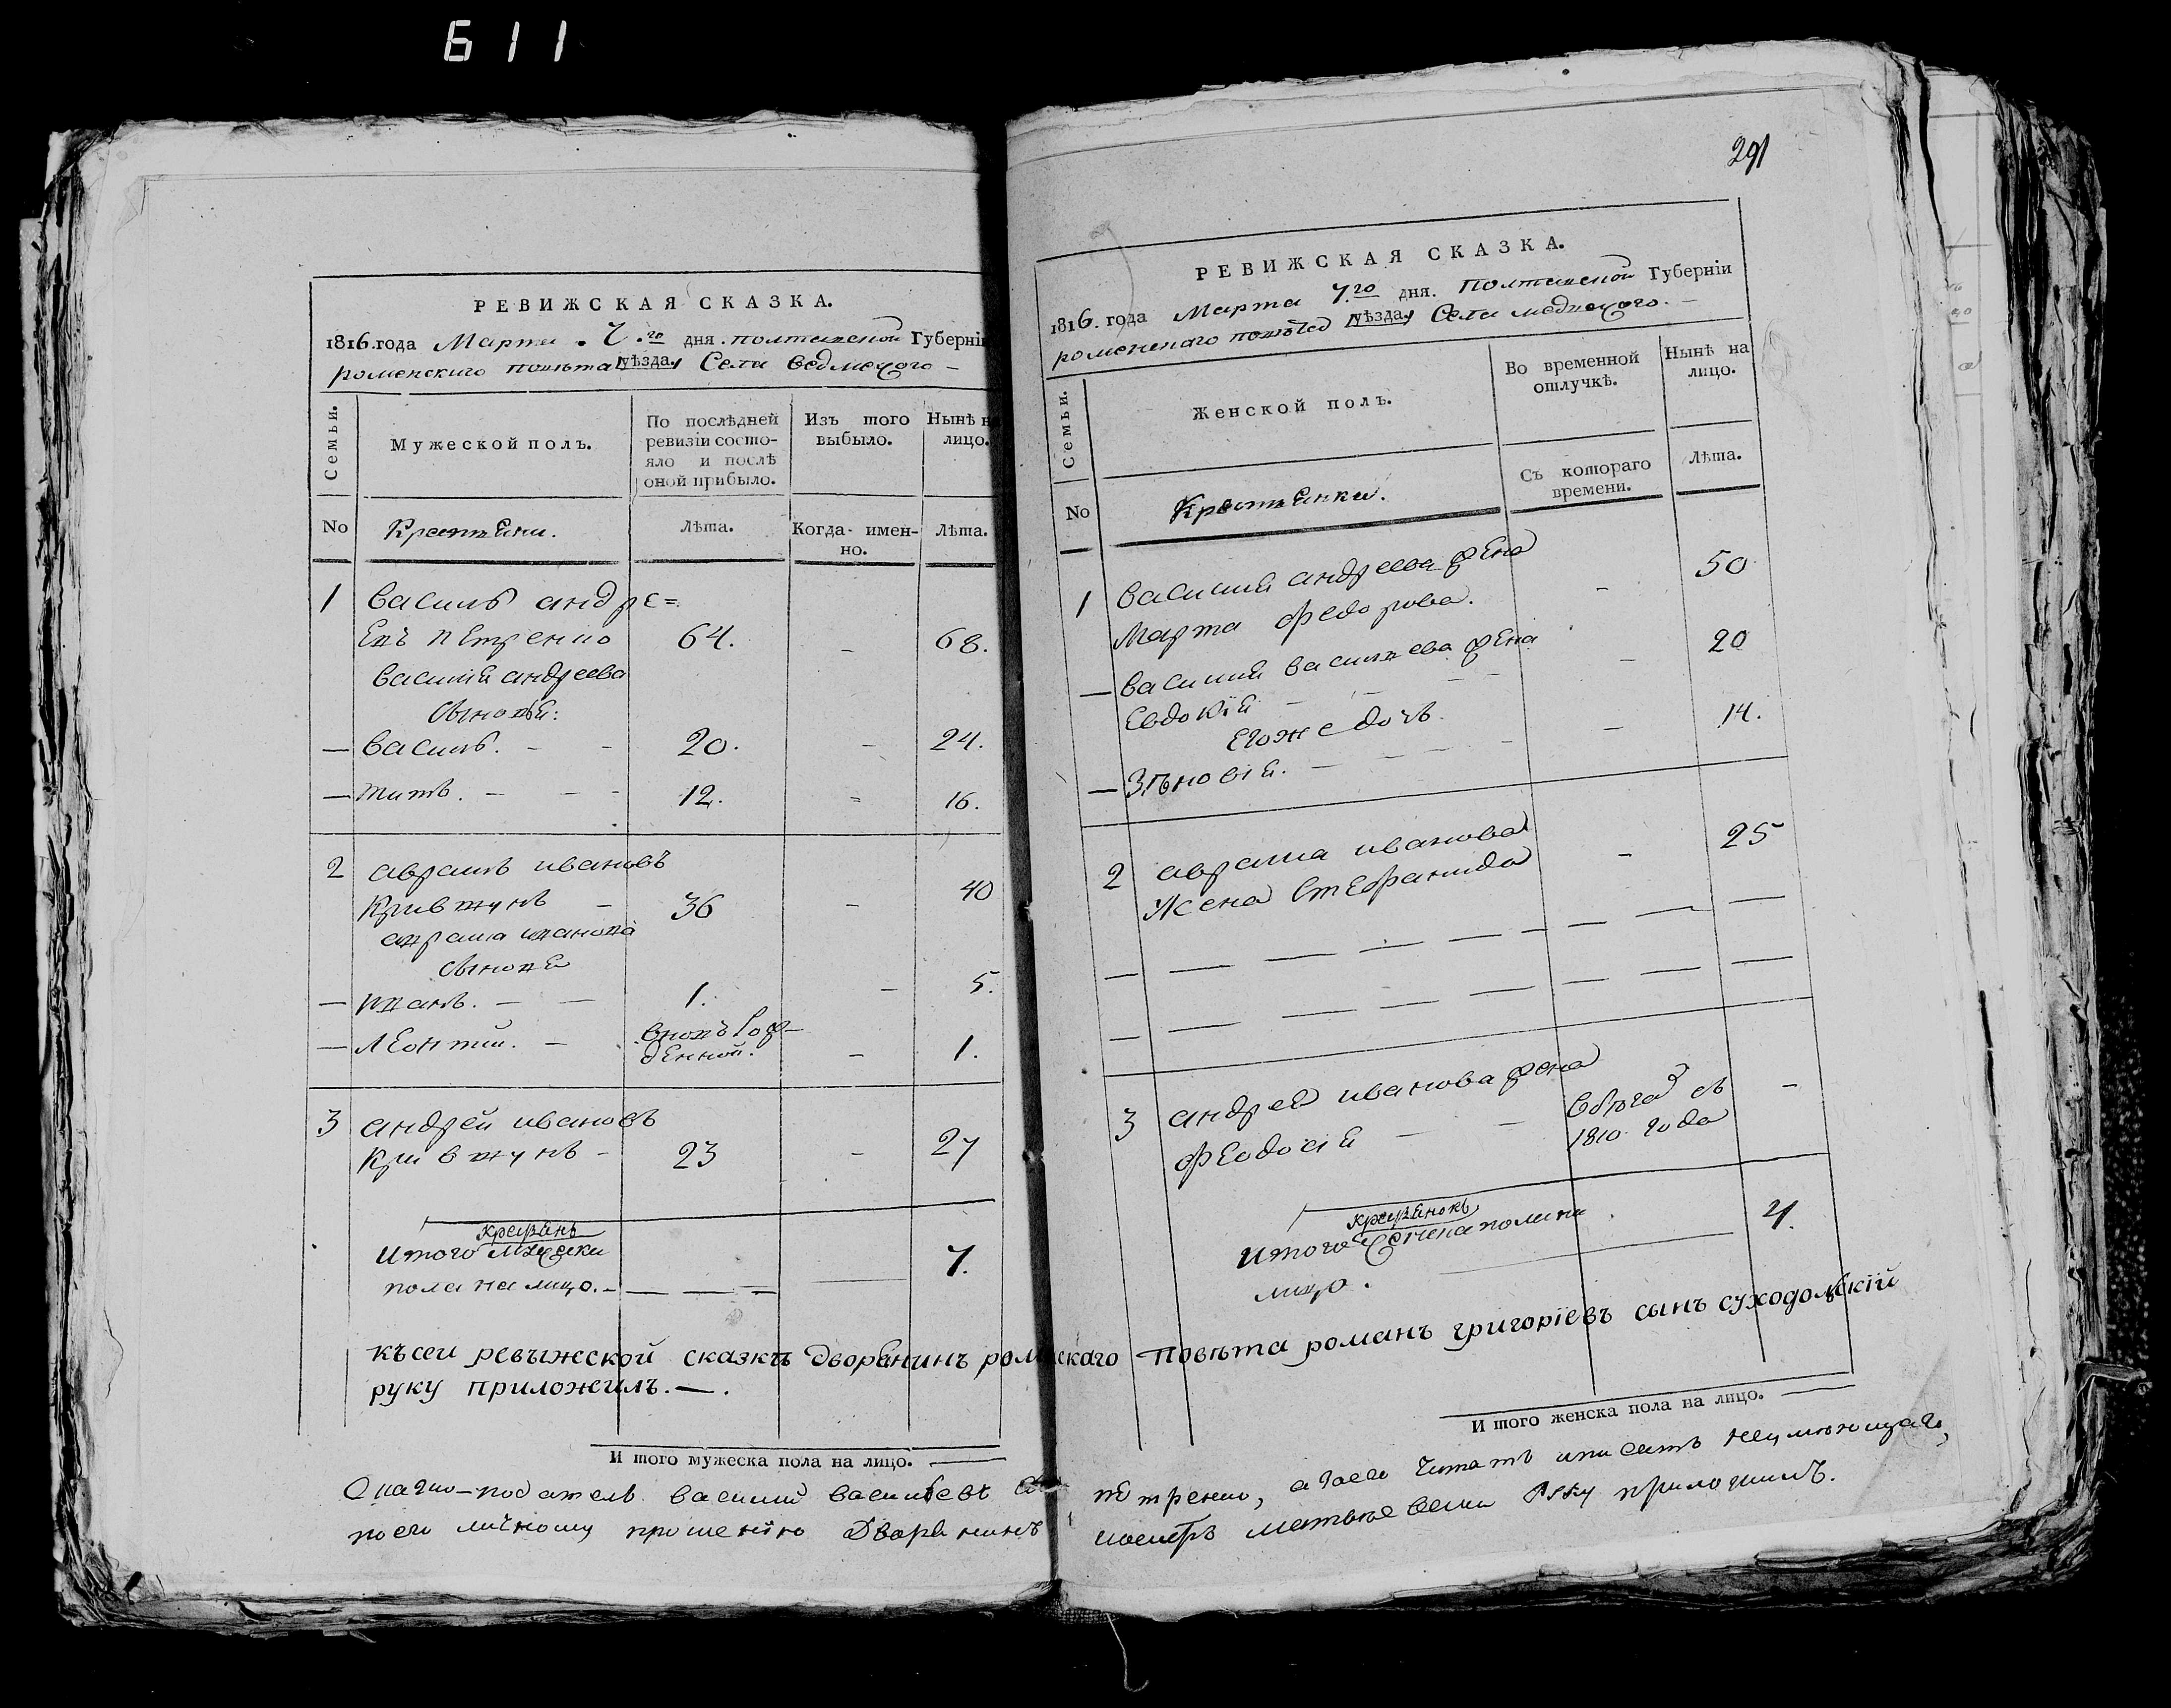 611
РЕВИЖСКАЯ СКАЗКА.
1816.года Марта 7.го дня. полтавской Губерніи
роменскаго повѣта уѣзда. Села ведмежого —
Семьи.
Мужеской полъ.
По послѣдней ревизіи состо-
яло и послѣ оной прибыло.
Изъ того выбыло.
Нынѣ н
лицо.
No
Крестяни.
Лѣта.
Когда имен-
но.
Лѣта.
1 василь андре=
евъ петренко 64. - 68.
василія андреева
сыновья:
— василь. - - 20. - 24.
— титъ. - - - 12. - 16.
2 аврамъ ивановъ
Кривжунъ - 36 - 40
аврама иванова
сыновья
— иванъ. - - 1. - 5.
— леонтій. - вновь рож-
денной. - 1.
3 андрей ивановъ
Кривжунъ - 23 - 27
крестянъ
Итого мужска
пола на лицо. - 7.
къ сеи ревыжской сказкѣ дворянинъ роменскаго повѣта романъ григоріевъ сынъ суходольскій
руку приложилъ. — .
И того мужеска пола на лицо.
291
РЕВИЖСКАЯ СКАЗКА.
1816. года Марта 7.го дня. полтавской Губерніи
роменскаго повѣта уѣзда. Села
Семьи.
Женской полъ.
Во временной
отлучкѣ.
Нынѣ на
лицо.
No
Крестянки.
Съ котораго
времени.
Лѣта.
1 василия андреева жена
Марта федорова. - 50
— василия василева жена
Евдокія - - 20
егоже дочь.
— Зѣновія. - - - 14.
2 аврама иванова
жена Стефанида - 25
3 андрея иванова жена
феодосія - - вбѣгах съ
1810 года -
крестянокъ
Итого женска пола на 4.
лицо.
И того женска пола на лицо.
податель василий васильевъ петренко, а заего читать иписать неумѣющаго,
по его личному прошенїю дворянинъ руку приложилъ.